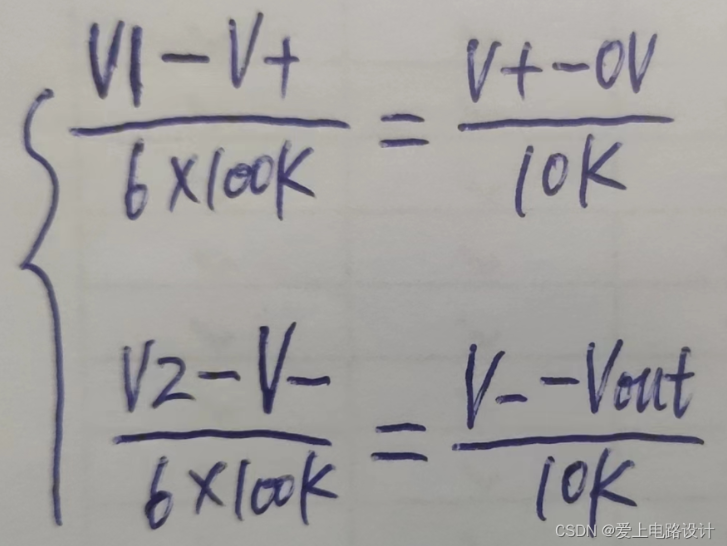 V1-V+ / 6×100K = V+-0V / 10K
V2-V- / 6×100K = V--Vout / 10K
CSDN @爱上电路设计